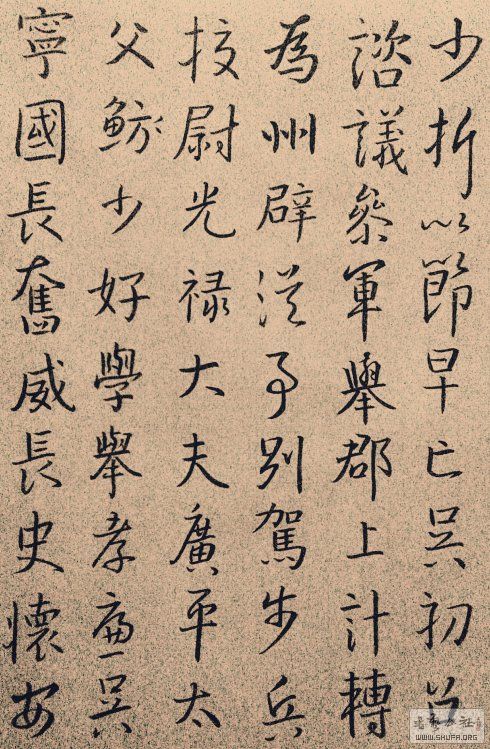 少折以節早亡吳初
諮議參軍舉郡上計轉
為州辟從事別駕步兵
校尉光禄大夫廣平太
父魴少好學舉孝廉吳
寧國長奮威長史懷安
WWW.SHUFA.ORG